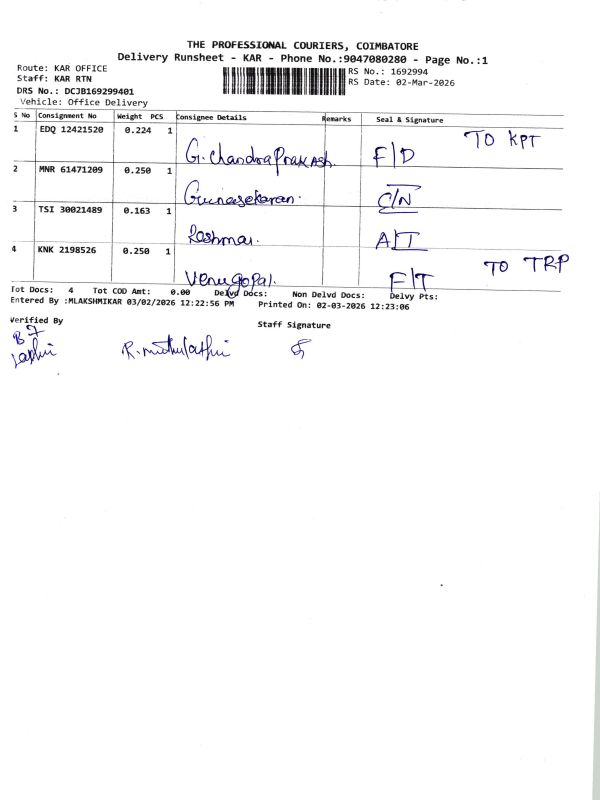 THE PROFESSIONAL COURIERS, COIMBATORE
Delivery Runsheet - KAR - Phone No.:9047080280 - Page No.:1
Route: KAR OFFICE RS No.: 1692994
Staff: KAR RTN RS Date: 02-Mar-2026
DRS No.: DCJB169299401
Vehicle: Office Delivery
S No Consignment No Weight PCS Consignee Details Remarks Seal & Signature
1 EDQ 12421520 0.224 1 G. Chandra Prakash. F/D TO KPT
2 MNR 61471209 0.250 1 Gunasekaran. C/N
3 TSI 30021489 0.163 1 Reshma. A/T
4 KNK 2198526 0.250 1 Venugopal. F/T TO TRP
Tot Docs: 4 Tot COD Amt: 0.00 Delvd Docs: Non Delvd Docs: Delvy Pts:
Entered By :MLAKSHMIKAR 03/02/2026 12:22:56 PM Printed On: 02-03-2026 12:23:06
Verified By Staff Signature